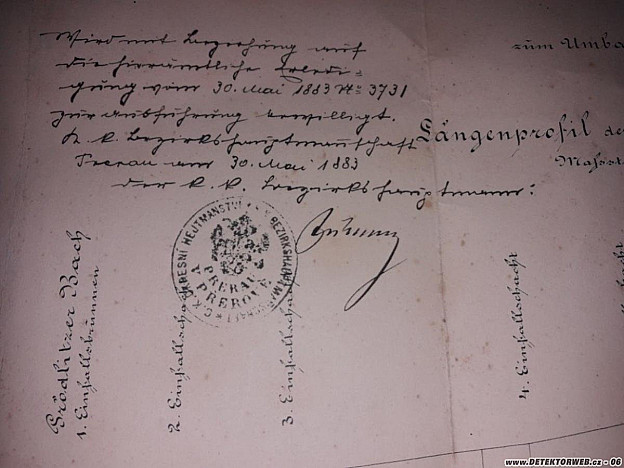 Wird mit Beziehung auf
die hierämtliche Erledi-
gung vom 30. Mai 1883 No 3731
zur Ausführung bewilligt.
K. k. Bezirkshauptmannschaft
Prerau am 30. Mai 1883
der k. k. Bezirkshauptmann:
zum Umba
Längenprofil de
Massst
C.K. OKRESNÍ HEJTMANSTVÍ
K.K. BEZIRKSHAUPTMANNSCHAFT
PRERAU
V PŘEROVĚ
Grödlitzer Bach
1. Einfallsbrunnen
2. Einfallschacht
3. Einfallschacht
4. Einfallschacht
www.DETEKTORWEB.cz - 06